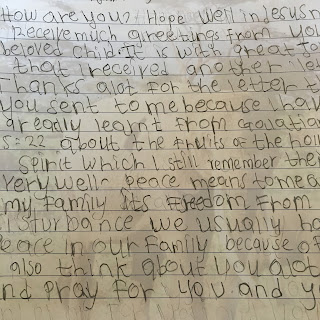 How are you? Hope well in Jesus n
Receive much greetings from you
beloved child. It is with great fo
that I received another let
Thanks alot for the letter t
you sent to me because I hav
greadly learnt from Galation
5:22 about the fruits of the hol
spirit which I still remember the
very well- peace means to me a
my family its Freedom From
disturbance we usually ha
peace in our family because of
also think about you alot
nd pray for you and y